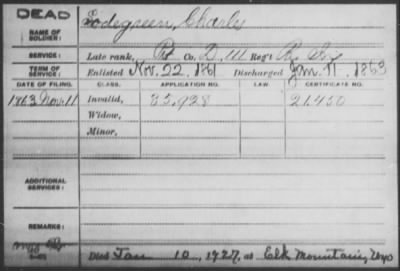 DEAD
NAME OF SOLDIER: Lodegreen, Charles
SERVICE: Late rank, Pt Co. D, 111 Reg't
TERM OF SERVICE: Enlisted Nov. 22, 1861 Discharged Jan. 11, 1863
DATE OF FILING. CLASS. APPLICATION NO. LAW. CERTIFICATE NO.
1863 Nov. 11 Invalid, 35,928 21,450
Widow,
Minor,
ADDITIONAL SERVICES:
REMARKS:
Died Jan 10, 1927, at Elk Mountain, Wyo